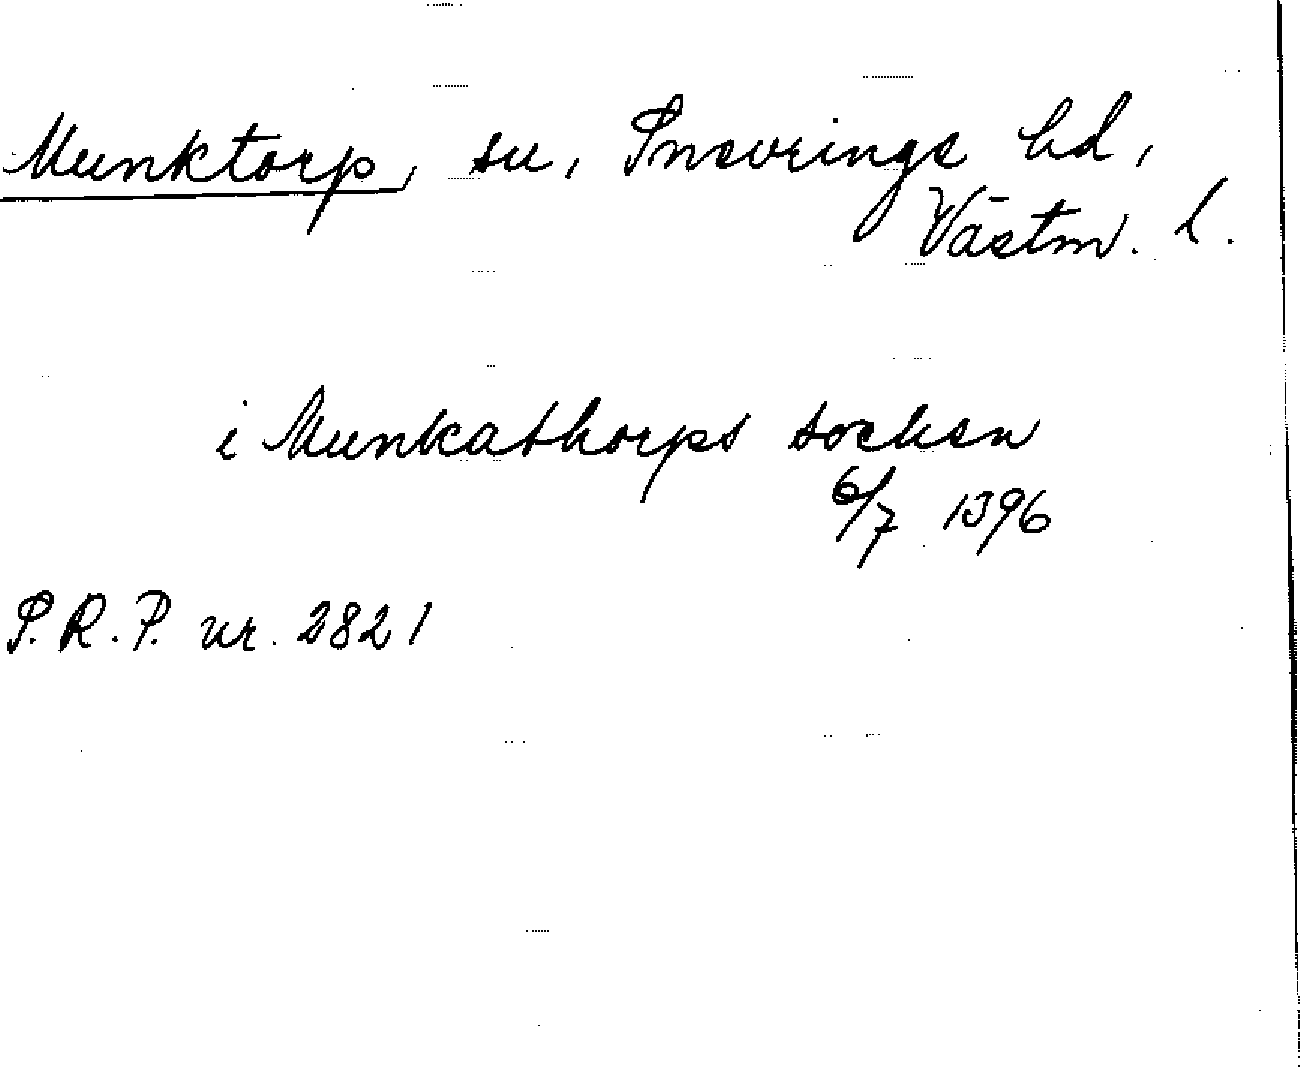 Munktorp, sn, Snevringe hd,
Västm. l.
i Munkathorps sochen
6/7 1396
S.R.P. nr. 2821